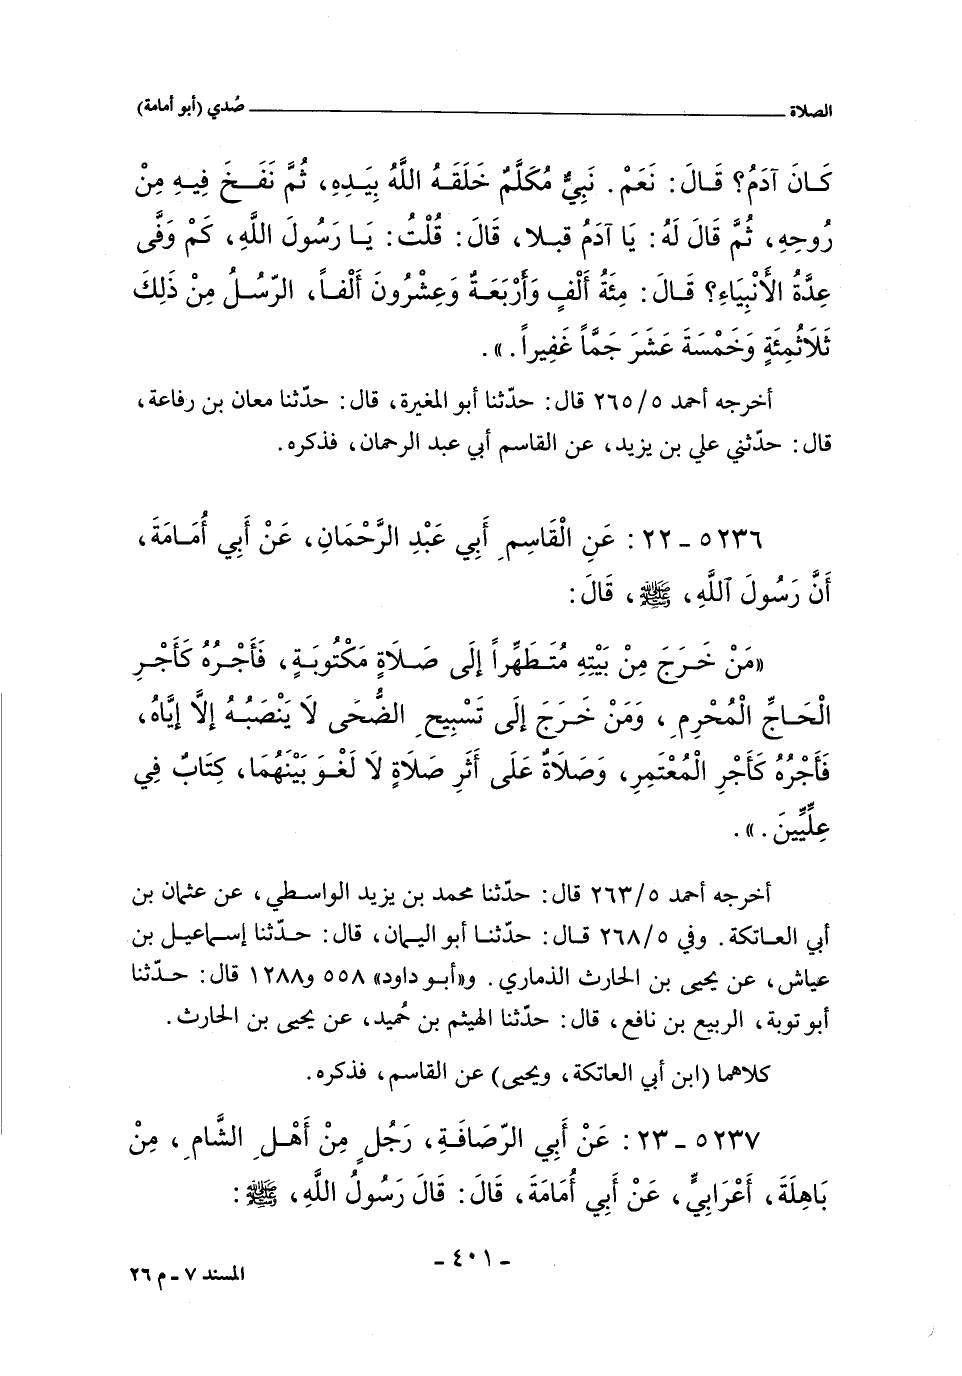 الصلاة ــــــــ صُدي (أبو أمامة)
كَانَ آدَمُ؟ قَالَ: نَعَمْ. نَبِيٌّ مُكَلَّمٌ خَلَقَهُ اللَّهُ بِيَدِهِ، ثُمَّ نَفَخَ فِيهِ مِنْ
رُوحِهِ، ثُمَّ قَالَ لَهُ: يَا آدَمُ قبلا، قَالَ: قُلْتُ: يَا رَسُولَ اللَّهِ، كَمْ وَفَّى
عِدَّةُ الأَنْبِيَاءِ؟ قَالَ: مِئَةُ أَلْفٍ وَأَرْبَعَةٌ وَعِشْرُونَ أَلْفاً، الرُّسُلُ مِنْ ذَلِكَ
ثَلَاثُمِئَةٍ وَخَمْسَةَ عَشَرَ جَمًّا غَفِيراً.».
أخرجه أحمد ٥/ ٢٦٥ قال: حدّثنا أبو المغيرة، قال: حدّثنا معان بن رفاعة،
قال: حدّثني علي بن يزيد، عن القاسم أبي عبد الرحمان، فذكره.
٥٢٣٦ - ٢٢: عَنِ الْقَاسِمِ أَبِي عَبْدِ الرَّحْمَانِ، عَنْ أَبِي أُمَامَةَ،
أَنَّ رَسُولَ ٱللَّهِ، ﷺ، قَالَ:
«مَنْ خَرَجَ مِنْ بَيْتِهِ مُتَطَهِّراً إِلَى صَلَاةٍ مَكْتُوبَةٍ، فَأَجْرُهُ كَأَجْرِ
الْحَاجِّ الْمُحْرِمِ، وَمَنْ خَرَجَ إِلَى تَسْبِيحِ الضُّحَى لَا يَنْصَبُهُ إِلَّا إِيَّاهُ،
فَأَجْرُهُ كَأَجْرِ الْمُعْتَمِرِ، وَصَلَاةٌ عَلَى أَثَرِ صَلَاةٍ لَا لَغْوَ بَيْنَهُمَا، كِتَابٌ فِي
عِلِّيِّينَ.».
أخرجه أحمد ٥/ ٢٦٣ قال: حدّثنا محمد بن يزيد الواسطي، عن عثمان بن
أبي العاتكة. وفي ٥/ ٢٦٨ قال: حدّثنا أبو اليمان، قال: حدّثنا إسماعيل بن
عياش، عن يحيى بن الحارث الذماري. و«أبو داود» ٥٥٨ و١٢٨٨ قال: حدّثنا
أبو توبة، الربيع بن نافع، قال: حدّثنا الهيثم بن حُميد، عن يحيى بن الحارث.
كلاهما (ابن أبي العاتكة، ويحيى) عن القاسم، فذكره.
٥٢٣٧ - ٢٣: عَنْ أَبِي الرَّصَافَةِ، رَجُلٍ مِنْ أَهْلِ الشَّامِ، مِنْ
بَاهِلَةَ، أَعْرَابِيٍّ، عَنْ أَبِي أُمَامَةَ، قَالَ: قَالَ رَسُولُ اللَّهِ، ﷺ:
- ٤٠١ -
المسند ٧ - م ٢٦